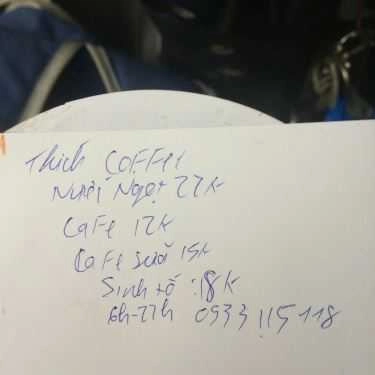 Thích COFFEE
Nước Ngọt 22K
CaFe 12K
CaFe sữa 15K
Sinh tố : 18K
6h-22h 0933 115 118